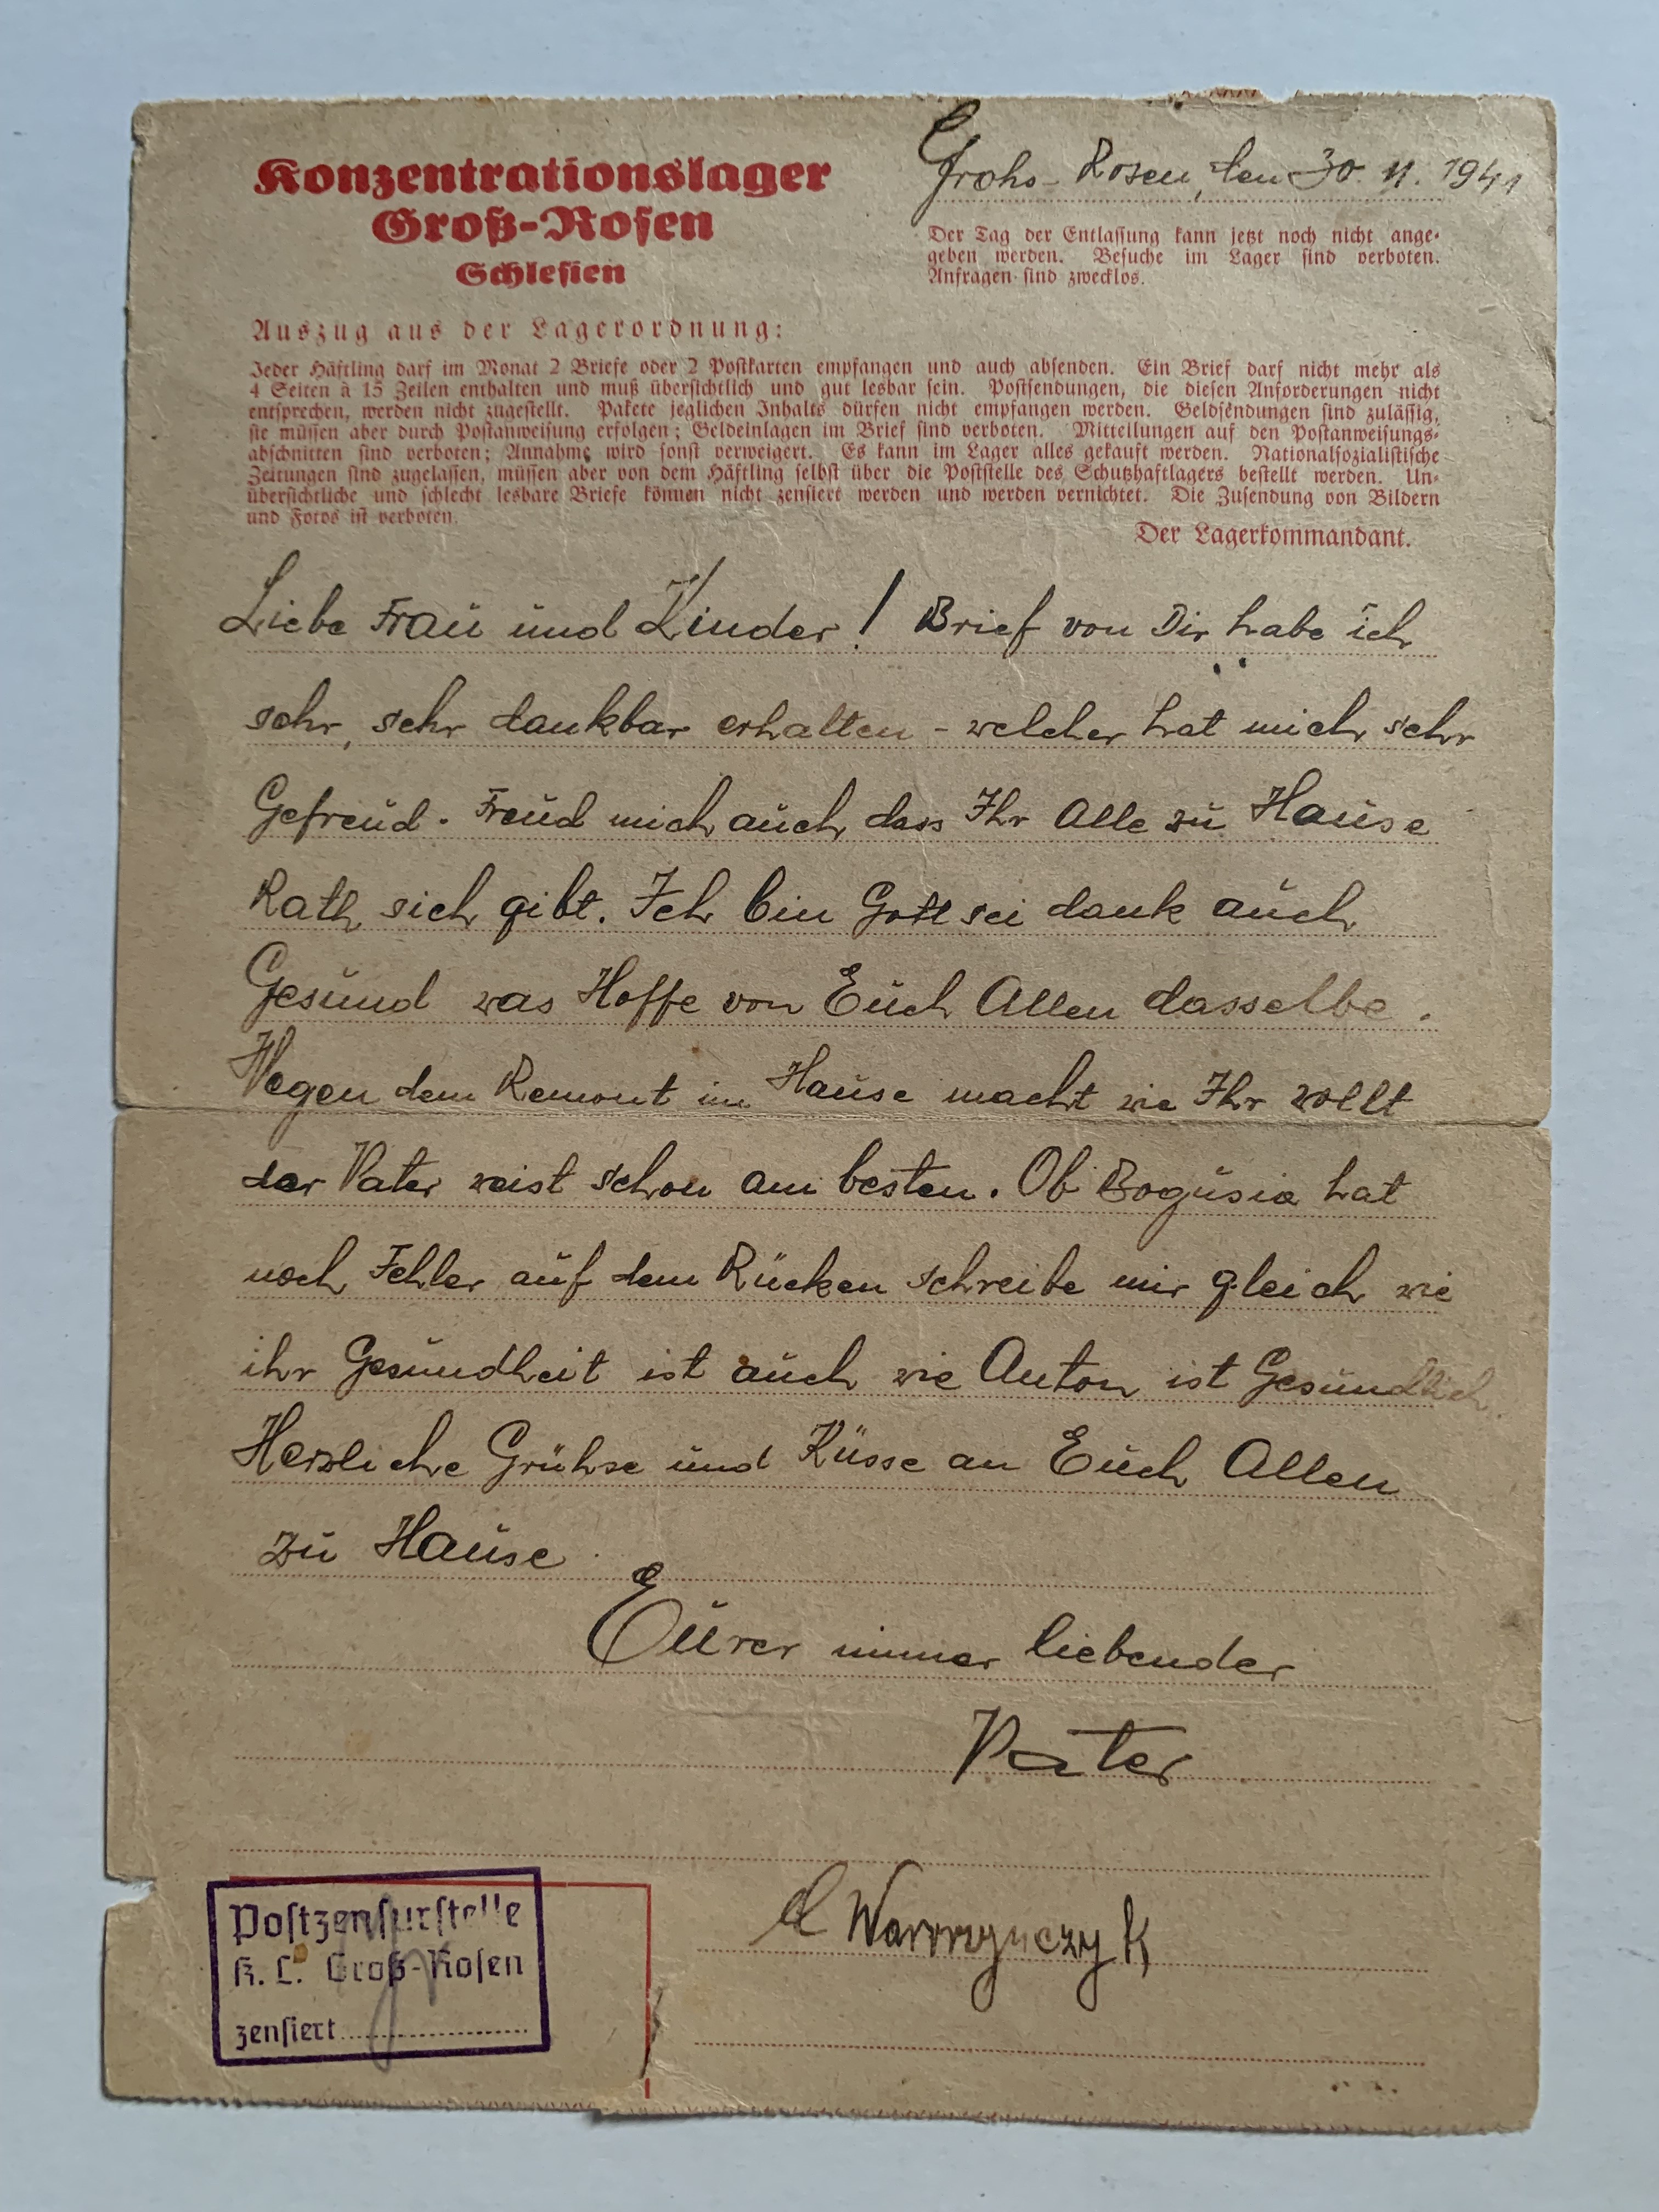 Konzentrationslager
Groß-Rosen
Schlesien
Grohs-Rosen, den 30. 11. 1941
Der Tag der Entlassung kann jetzt noch nicht ange-
geben werden. Besuche im Lager sind verboten.
Anfragen sind zwecklos.
Auszug aus der Lagerordnung:
Jeder Häftling darf im Monat 2 Briefe oder 2 Postkarten empfangen und auch absenden. Ein Brief darf nicht mehr als
4 Seiten à 15 Zeilen enthalten und muß übersichtlich und gut lesbar sein. Postsendungen, die diesen Anforderungen nicht
entsprechen, werden nicht zugestellt. Pakete jeglichen Inhalts dürfen nicht empfangen werden. Geldsendungen sind zulässig,
sie müssen aber durch Postanweisung erfolgen; Geldeinlagen im Brief sind verboten. Mitteilungen auf den Postanweisungs-
abschnitten sind verboten; Annahme wird sonst verweigert. Es kann im Lager alles gekauft werden. Nationalsozialistische
Zeitungen sind zugelassen, müssen aber von dem Häftling selbst über die Poststelle des Schutzhaftlagers bestellt werden. Un-
übersichtliche und schlecht lesbare Briefe können nicht zensiert werden und werden vernichtet. Die Zusendung von Bildern
und Fotos ist verboten.
Der Lagerkommandant.
Liebe Frau und Kinder! Brief von Dir habe ich
sehr, sehr dankbar erhalten - welcher hat mich sehr
Gefreud. Freud mich auch dass Ihr Alle zu Hause
Rath sich gibt. Ich bin Gott sei dank auch
Gesund was Hoffe von Euch Allen dasselbe.
Wegen dem Remont im Hause macht wie Ihr wollt
der Vater weist schon am besten. Ob Bogusia hat
noch Fehler auf dem Rücken schreibe mir gleich wie
ihr Gesundheit ist auch wie Anton ist Gesundlich.
Herzliche Grühse und Küsse an Euch Allen
zu Hause
Eurer immer liebender
Vater
Postzensurstelle
K. L. Groß-Rosen
zensiert